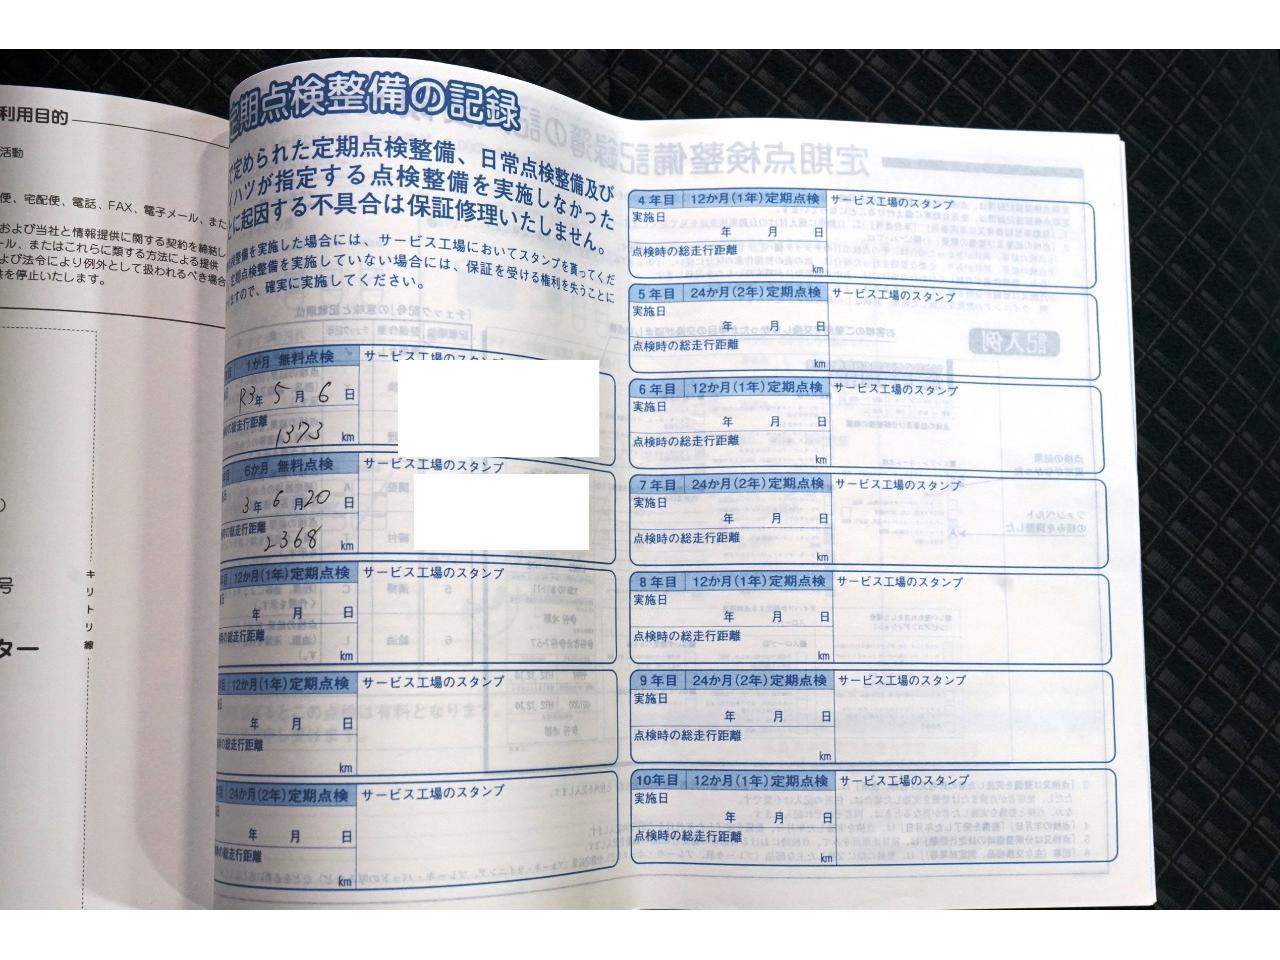 利用目的
活動
便、宅配便、電話、FAX、電子メール、また
および当社と情報提供に関する契約を締結し
ール、またはこれらに類する方法による提供
よび法令により例外として扱われるべき場合
を停止いたします。
号
ター
キリトリ線
定期点検整備の記録
で定められた定期点検整備、日常点検整備及び
イハツが指定する点検整備を実施しなかった
に起因する不具合は保証修理いたしません。
検整備を実施した場合には、サービス工場においてスタンプを貰ってくだ
定期点検整備を実施していない場合には、保証を受ける権利を失うことに
ますので、確実に実施してください。
1か月 無料点検 サービス工場のスタンプ
R3年 5月 6日
時の総走行距離
1373 km
6か月 無料点検 サービス工場のスタンプ
3年 6月 20日
時の総走行距離
2368 km
年目 12か月(1年)定期点検 サービス工場のスタンプ
年 月 日
時の総走行距離
km
年目 12か月(1年)定期点検 サービス工場のスタンプ
年 月 日
時の総走行距離
km
年目 24か月(2年)定期点検 サービス工場のスタンプ
年 月 日
時の総走行距離
km
4年目 12か月(1年)定期点検 サービス工場のスタンプ
実施日
年 月 日
点検時の総走行距離
km
5年目 24か月(2年)定期点検 サービス工場のスタンプ
実施日
年 月 日
点検時の総走行距離
km
6年目 12か月(1年)定期点検 サービス工場のスタンプ
実施日
年 月 日
点検時の総走行距離
km
7年目 24か月(2年)定期点検 サービス工場のスタンプ
実施日
年 月 日
点検時の総走行距離
km
8年目 12か月(1年)定期点検 サービス工場のスタンプ
実施日
年 月 日
点検時の総走行距離
km
9年目 24か月(2年)定期点検 サービス工場のスタンプ
実施日
年 月 日
点検時の総走行距離
km
10年目 12か月(1年)定期点検 サービス工場のスタンプ
実施日
年 月 日
点検時の総走行距離
km